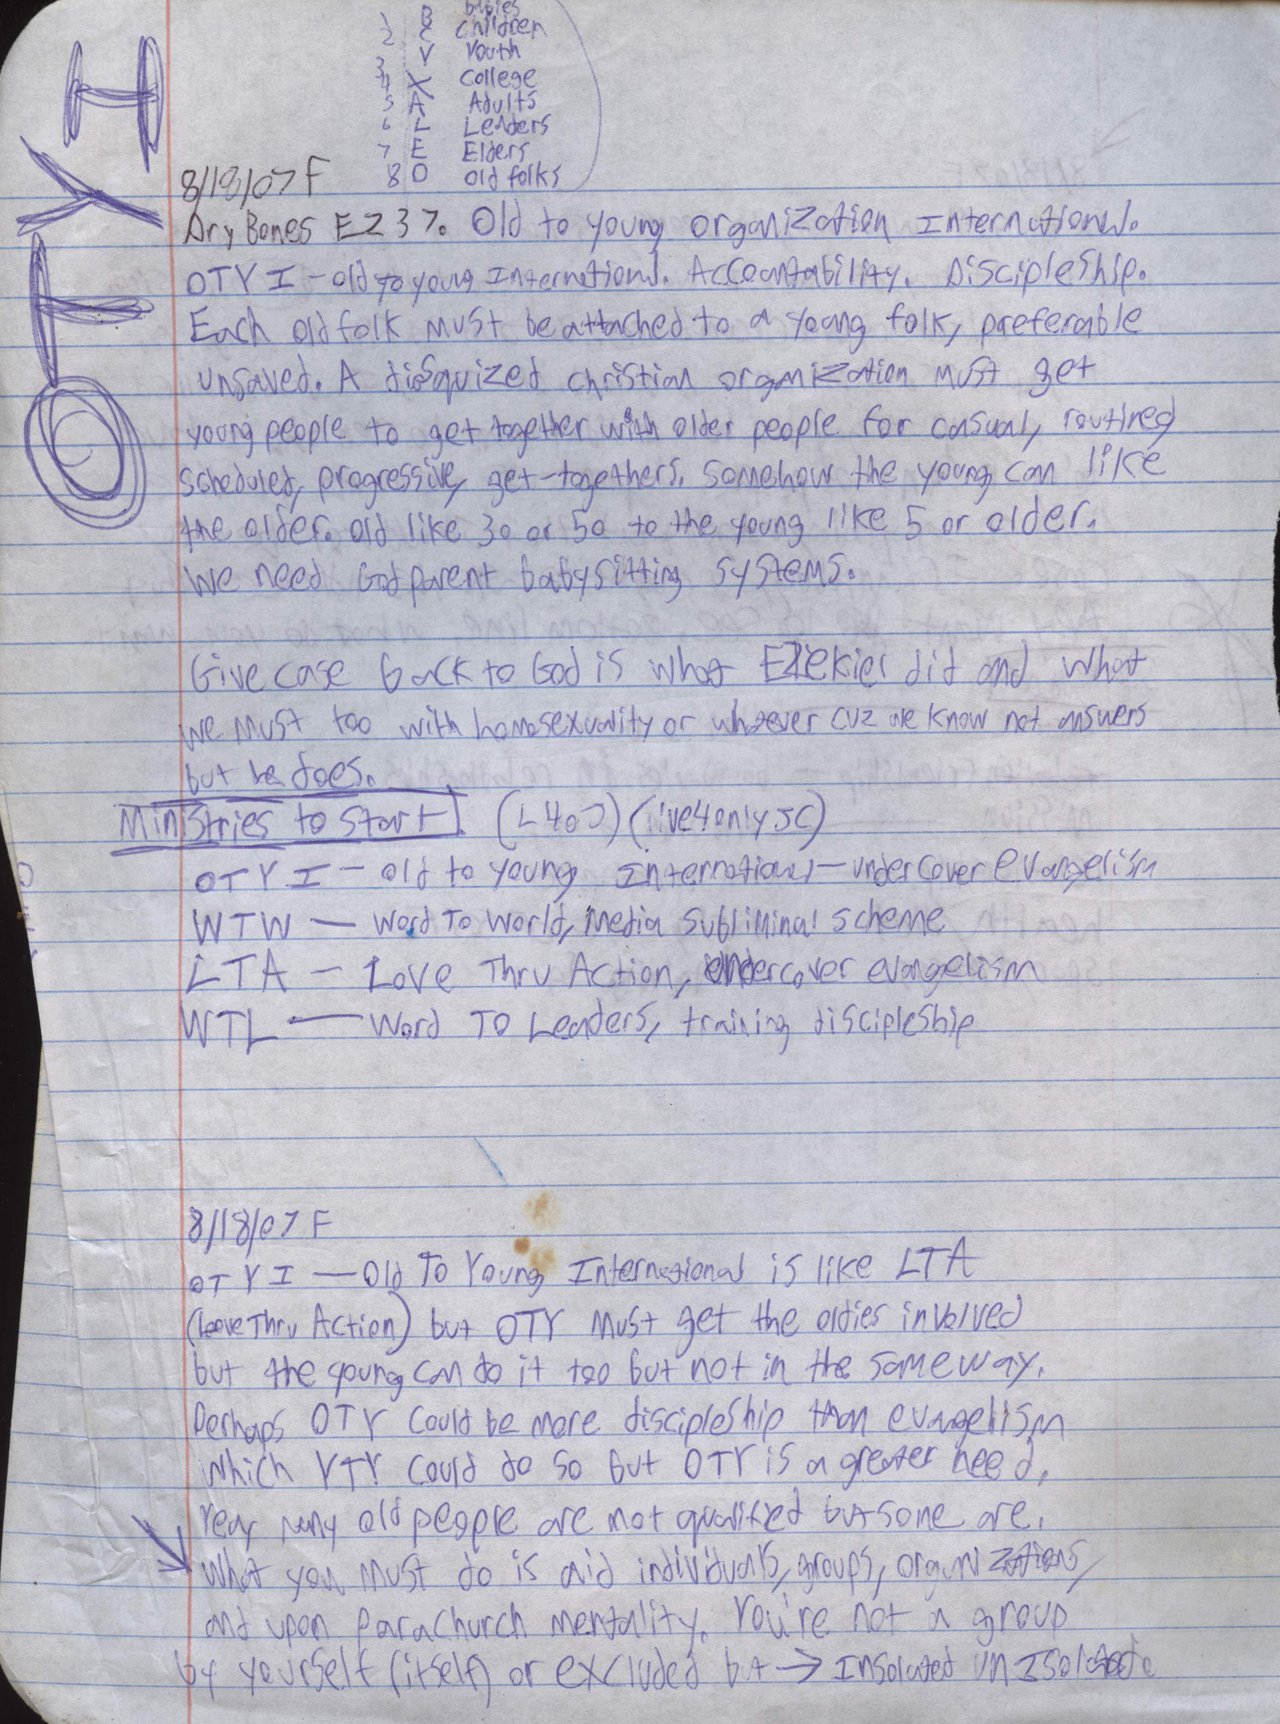 1 B babies
2 C children
3 Y Youth
4 X College
5 A Adults
6 L Leaders
7 E Elders
8 O old folks
OTYI
8/18/07 F
Dry Bones EZ 37. Old to young organization International.
OTY I - old to young International. Accountability. Discipleship.
Each old folk must be attached to a young folk, preferable
unsaved. A disquized christian organization must get
young people to get together with older people for casual, routined
scheduled, progressive, get-togethers. Somehow the young can like
the older. old like 30 or 50 to the young like 5 or older.
We need Godparent babysitting systems.
Give case back to God is what Ezekiel did and what
we must too with homosexuality or whatever cuz we know not answers
but he does.
Ministries to Start (L4OJ) (live4onlyJC)
OTY I - old to young International - undercover evangelism
WTW - Word To World, Media subliminal scheme
LTA - Love Thru Action, undercover evangelism
WTL - Word To Leaders, training discipleship
8/18/07 F
OTY I - Old To Young International is like LTA
(Love Thru Action) but OTY Must get the oldies involved
but the young can do it too but not in the same way.
Perhaps OTY could be more discipleship than evangelism
which YTY could do so but OTY is a greater need.
Yeay many old people are not qualified but some are.
What you must do is aid individuals, groups, organizations,
and upon parachurch mentality. You're not a group
by yourself (itself) or excluded but → Insolated unisolated